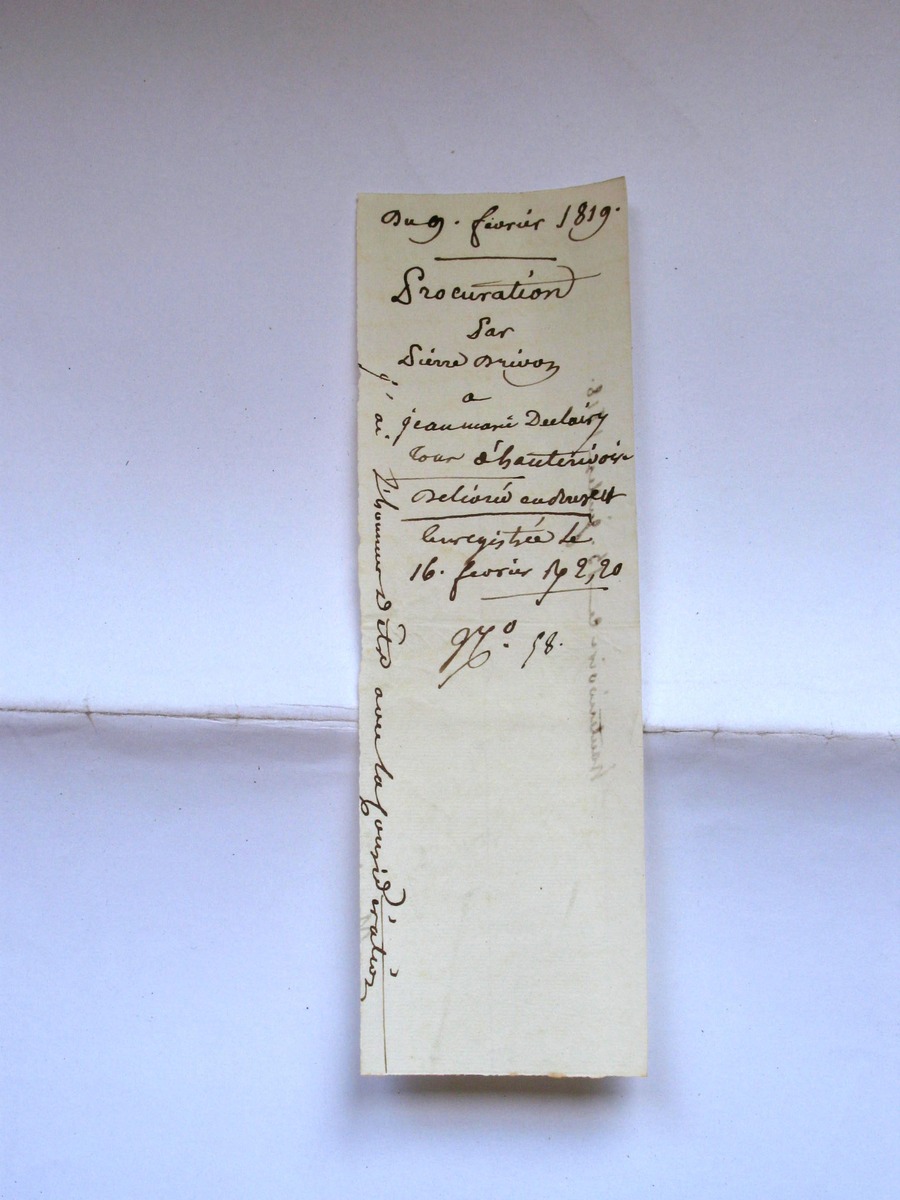 Du 9. février 1819.
Procuration
Par
Pierre Brivon
a
jeanmarie Declairy
tous d'hauterivoire
Délivré en brevet
Enregistrée Le
16. fevrier 2,20
N.o 58.
j'ai l'honneur d'être avec la Considération